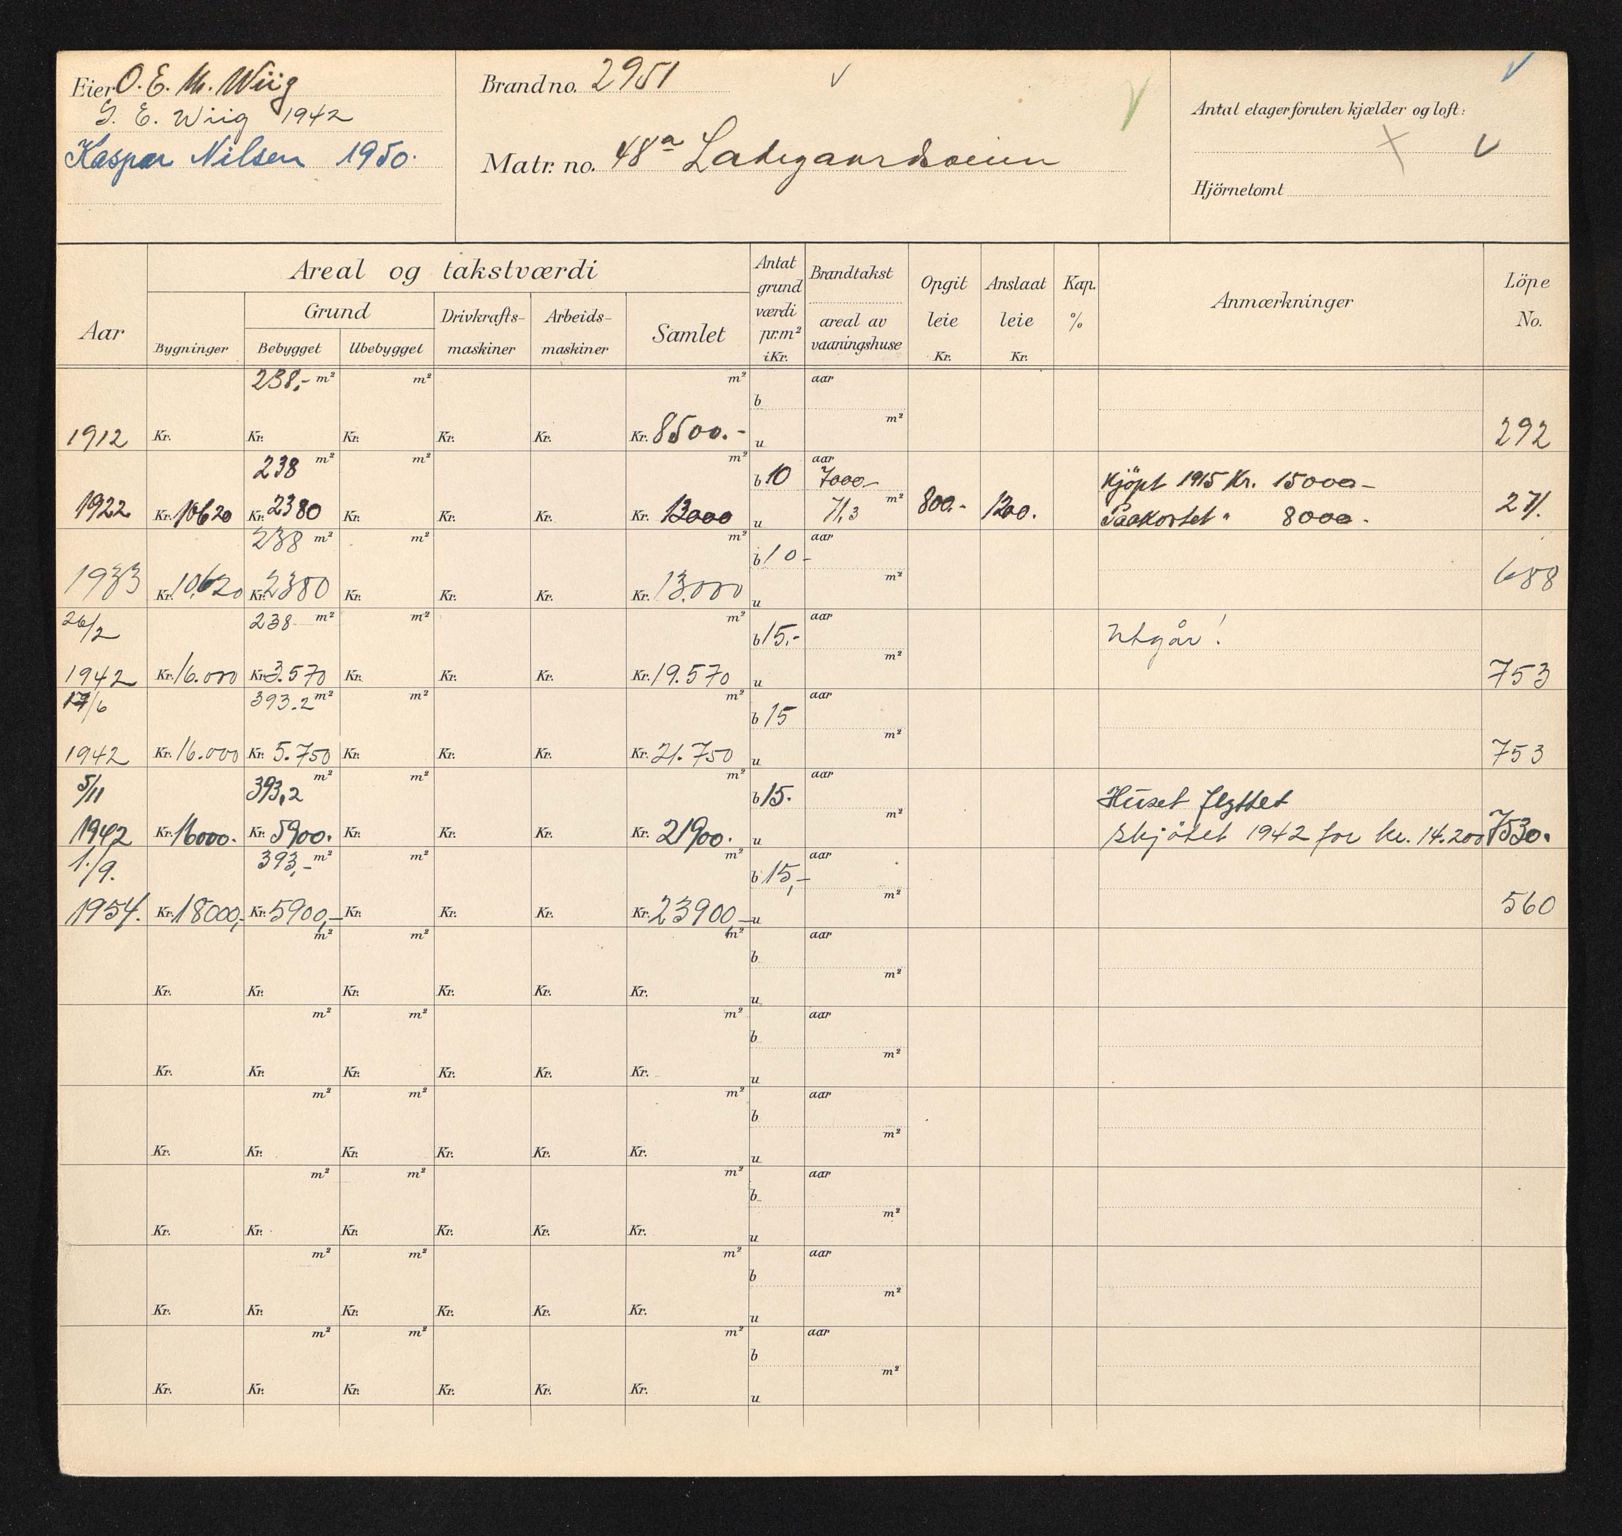 Eier O. E. M. Wiig
G. E. Wiig 1942
Kaspar Nilsen 1950.
Brand no. 2951
Matr. no. 48a Ladegaardsveien
Antal etager foruten kjælder og loft:
Hjörnetomt
Aar
Areal og takstværdi
Grund
Bygninger
Bebygget
Ubebygget
Drivkrafts-maskiner
Arbeids-maskiner
Samlet
Antat grund værdi pr. m² i Kr.
Brandtakst
areal av vaaningshuse
Opgit leie Kr.
Anslaat leie Kr.
Kap. %
Anmærkninger
Löpe No.
238,- m² m² m² aar
b
m²
1912 Kr. Kr. Kr. Kr. Kr. Kr. 8500.- u 292
238 m² m² m² aar
b 10 7000.- Kjöpt 1915 Kr. 15000.-
1922 Kr. 10620 Kr. 2380 Kr. Kr. Kr. Kr. 13000 u 71,3 m² 800.- 1200. Paakostet " 8000.- 271.
238 m² m² m² aar
b 10-
m²
1933 Kr. 10.620 Kr. 2380 Kr. Kr. Kr. Kr. 13.000 u 688
26/2 238 m² m² m² aar
b 15.- Utgår!
m²
1942 Kr. 16.000 Kr. 3.570 Kr. Kr. Kr. Kr. 19.570 u 753
17/6 393.2 m² m² m² aar
b 15
m²
1942 Kr. 16.000 Kr. 5.750 Kr. Kr. Kr. Kr. 21.750 u 753
5/11 393,2 m² m² m² aar
b 15. Huset flyttet
m²
1942 Kr. 16000. Kr. 5900. Kr. Kr. Kr. Kr. 21900. u skjötet 1942 for kr. 14.200 7530.
1./9. 393,- m² m² m² aar
b 15,-
m²
1954. Kr. 18000,- Kr. 5900,- Kr. Kr. Kr. Kr. 23900,- u 560
m² m² m² aar
b
m²
Kr. Kr. Kr. Kr. Kr. Kr. u
m² m² m² aar
b
m²
Kr. Kr. Kr. Kr. Kr. Kr. u
m² m² m² aar
b
m²
Kr. Kr. Kr. Kr. Kr. Kr. u
m² m² m² aar
b
m²
Kr. Kr. Kr. Kr. Kr. Kr. u
m² m² m² aar
b
m²
Kr. Kr. Kr. Kr. Kr. Kr. u
m² m² m² aar
b
m²
Kr. Kr. Kr. Kr. Kr. Kr. u